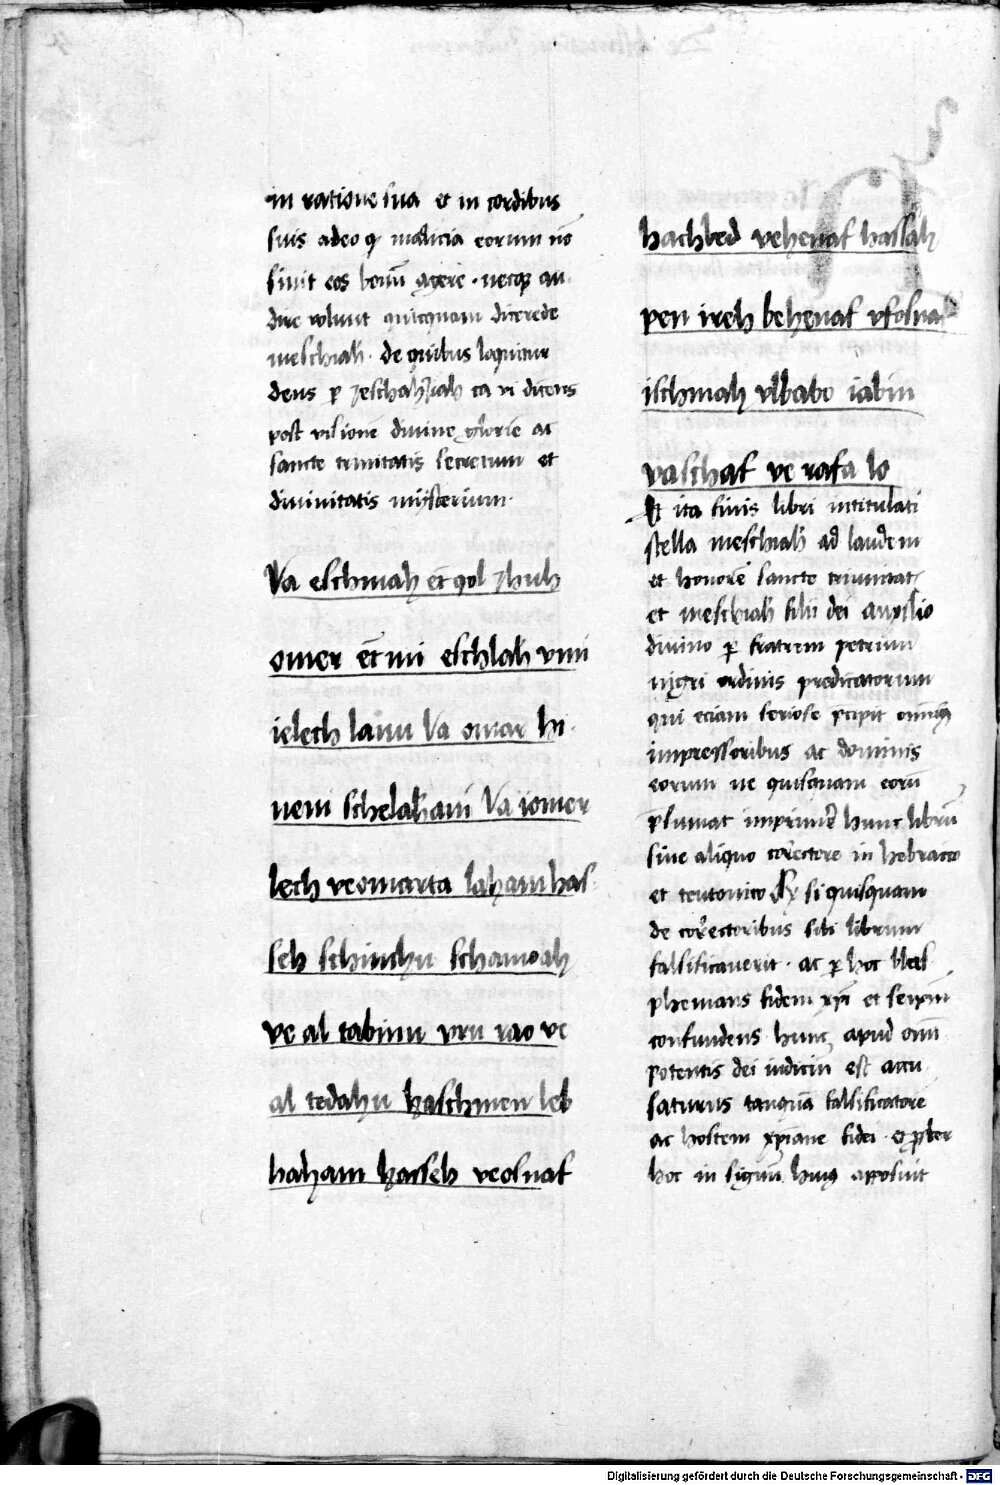 in ratione sua et in cordibus
suis adeo q̄ malicia eorum nō
sinit eos bonū agere · necq̨ au
dire volunt quicquam dicere de
meschiah · de quibus loquitur
deus p̱ Jeschahiah ca vi dicens
post visionē divine glorie ac
sancte trinitatis secretum et
divinitatis mysterium ·
Va eschmah et qol Jhuh
omer et mi eschlah vmi
ielech lanu Va omar hi
neni schelahani Va iomer
lech veomarta laham has
seh schimhu schamoah
ve al tabinu vru rao ve
al tedahu haschmen leb
haham hasseh veosnaf
hachbed vehenaf hassah
pen ireh behenaf vfosnaf
ischmah vlbabo iabin
vaschaf ve rafa lo
Et ita finis libri intitulati
stella meschiah ad laudem
et honorē sancte trinitat
et meschiah filii dei auxilio
divino p̱ fratrem petrum
nigri ordinis predicatorum
qui eciam seriose p̄cipit omibꝫ
impressoribus ac dominis
eorum ne quisquam eorū
p̄sumat imprimere hunc librū
sine aliquo corectore in hebraico
et teutonico si quisquam
de corectoribus sibi librum
falsificaverit · ac p̱ hoc blas
phemans fidem xp̄i et seipm̄
confundens hunc apud om̄i
potentis dei iudiciū est accu
saturus tanquā falsificatore
ac hostem xp̄iane fidei · et p̱pter
hoc in signū huiꝰ apposuit
Digitalisierung gefördert durch die Deutsche Forschungsgemeinschaft - DFG